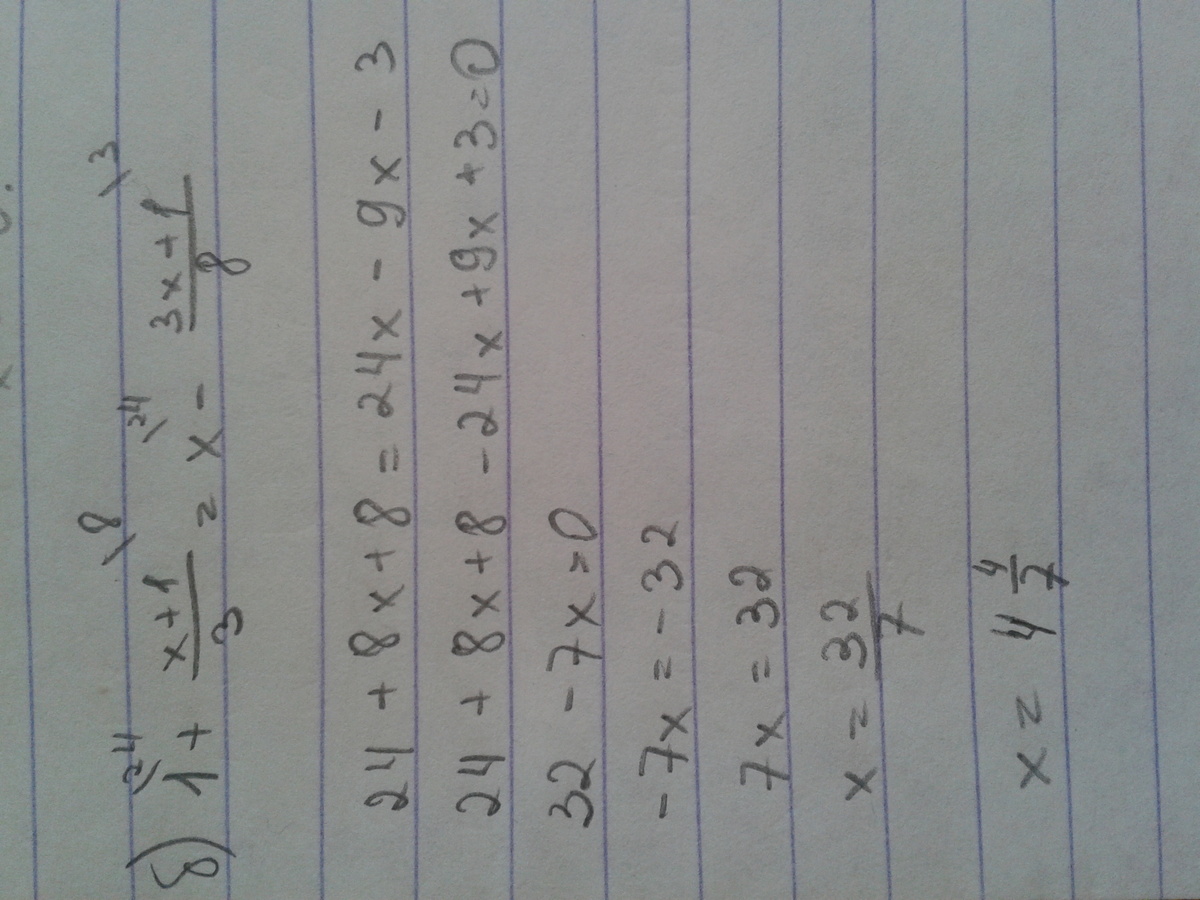 8) 1\24 + x+1/3 \8 = x\24 - 3x+1/8 \3
24 + 8x+8 = 24x - 9x - 3
24 + 8x+8 -24x +9x +3=0
32 - 7x=0
-7x = -32
7x = 32
x = 32/7
x = 4 4/7